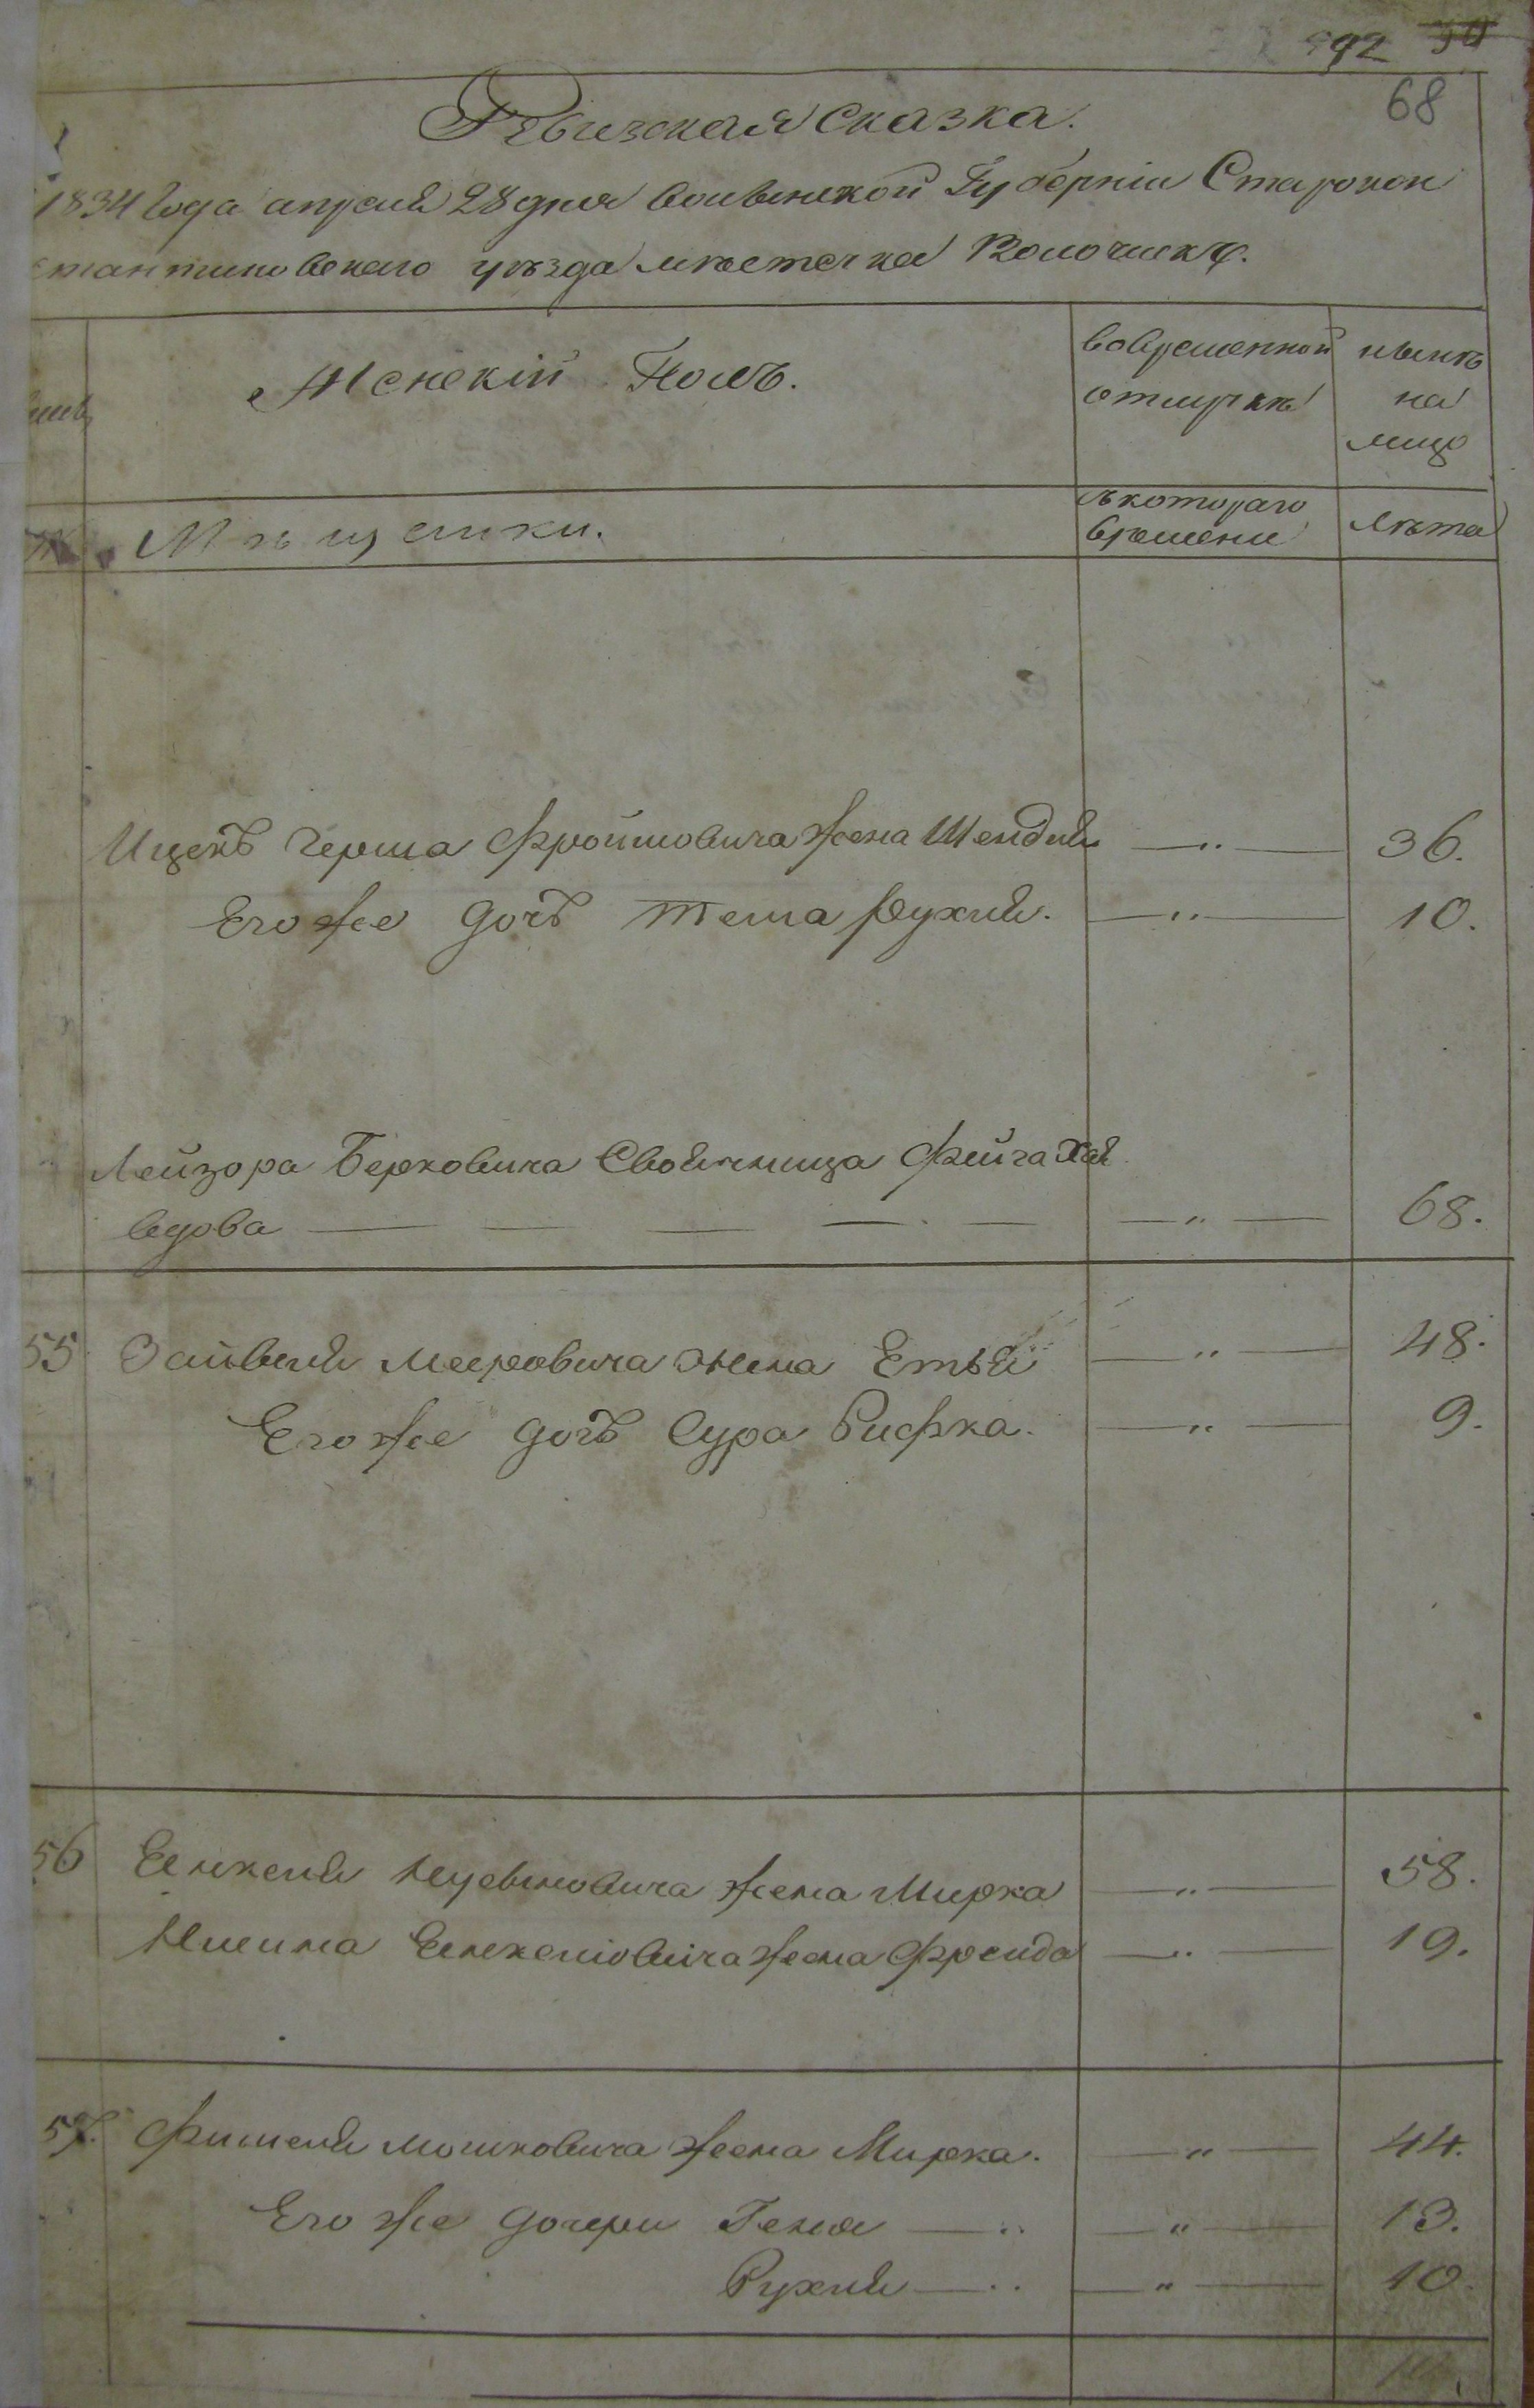 92 50
68
Ревизская сказка.
1834 Года апреля 28 дня Волынской Губерніи Старокон
стантиновскаго уѣзда мѣстечка Волочискъ.
Женскій Полъ.
во временной
отлучкѣ
нынѣ
на
лицо
Мѣщанки.
съ котораго
времени
Лѣта
Ицекъ Герша Фроимовича Жена Шендля — „ — 36.
Его Же дочъ Тема Рухля. — „ — 10.
Лейзора Берковича Своячница Фейга Хая
вдова — — — — — — „ — 68.
55 Зайвеля Мееровича жена Етля — „ — 48.
Его Же дочъ Сура Рифка. — „ — 9.
56 Жена Мирка — „ — 58.
Жена Фрейда — „ — 19.
57. Фишеля Мошковича Жена Мирка. — „ — 44.
Его Же дочери Геня — „ — 13.
Рухля — „ — 10.